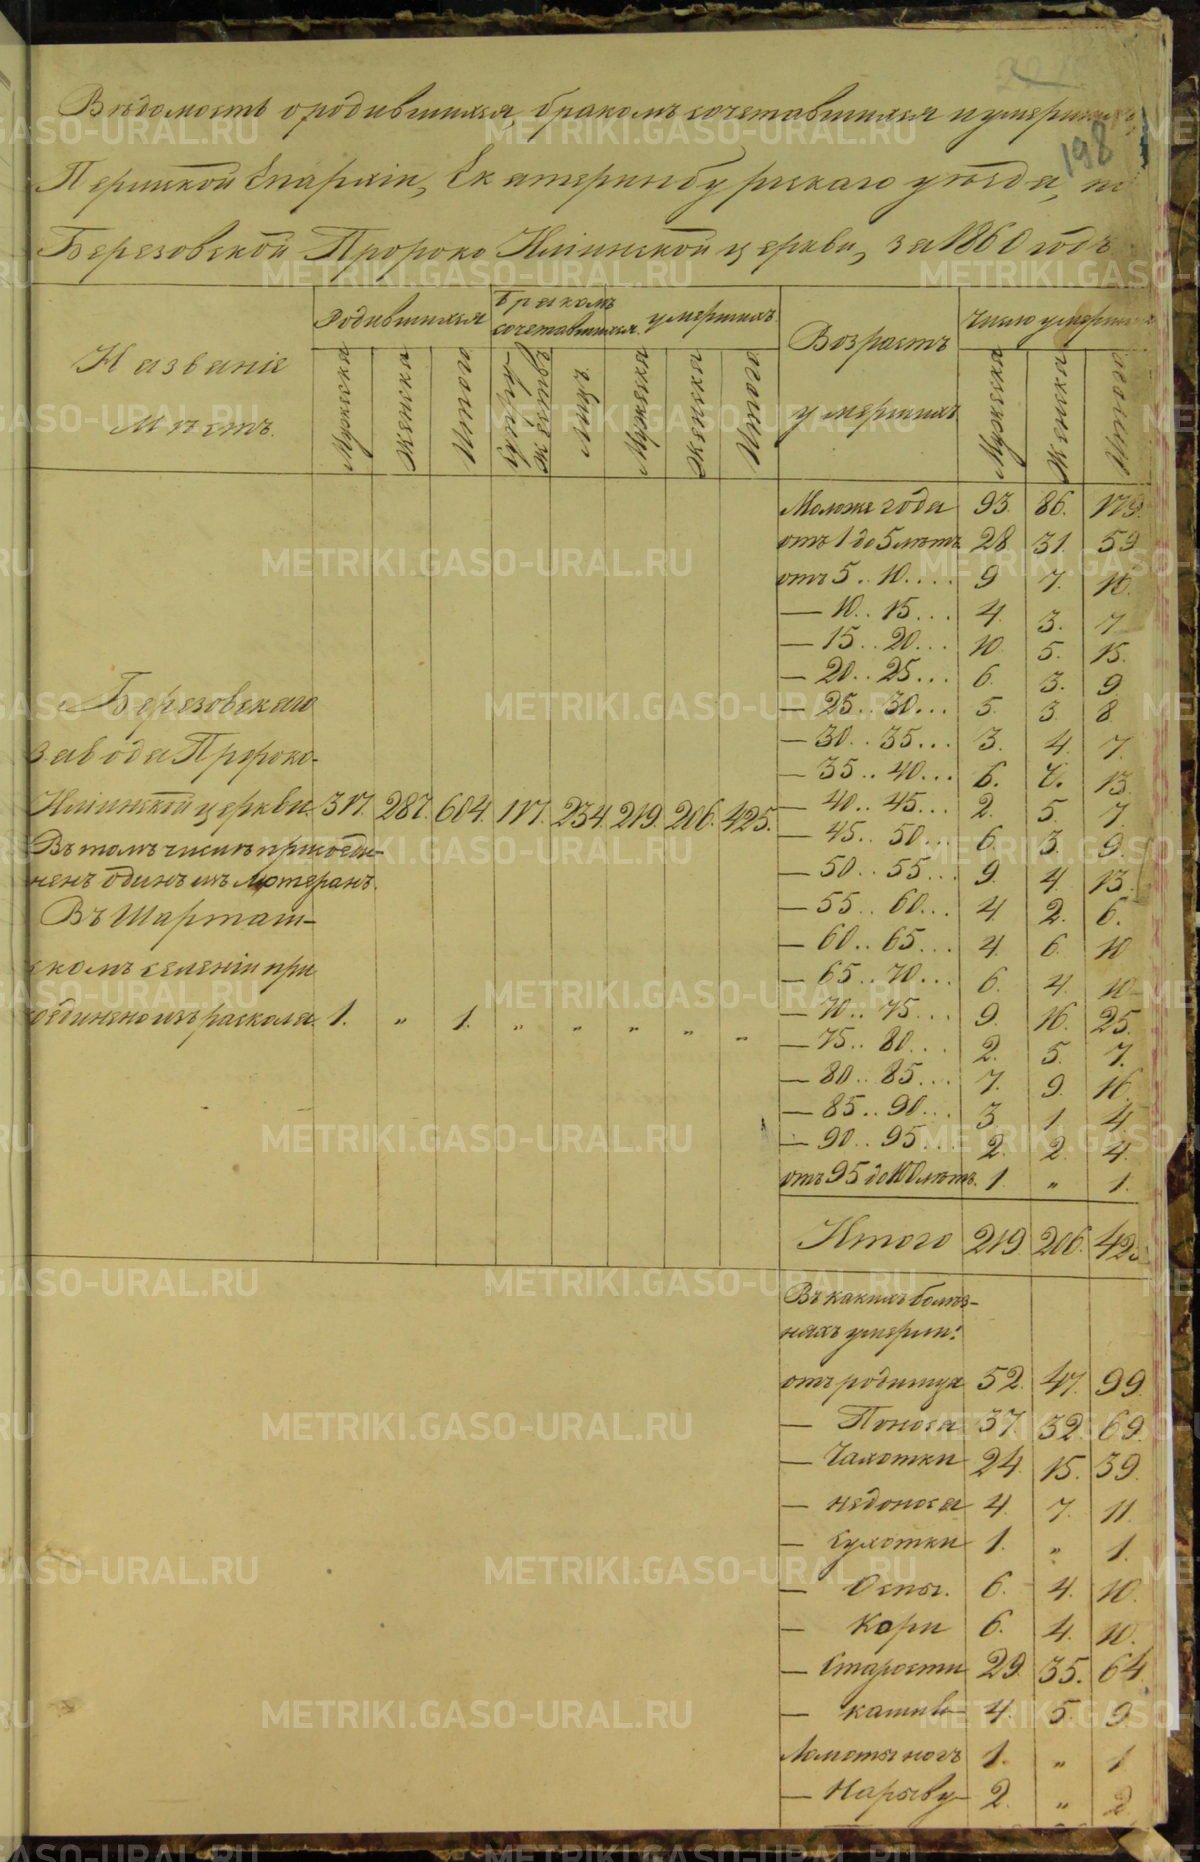 198
Вѣдомость о родившихся, бракомъ сочетавшихся и умершихъ,
Пермской Епархіи, Екатеринбургскаго уѣзда, по
Березовской Пророко Иліинской церкви, за 1860 годъ
Названіе Мѣстъ.
Родившихся
Бракомъ сочетавшихся
умершихъ
Возрастъ умершихъ
Число умершихъ
Мужеска Женска Итого Супружествъ Лицъ. Мужеска Женска Итого Мужеска Женска Итого
Моложе года 93. 86. 179.
отъ 1 до 5 лѣтъ 28 31. 59
отъ 5 .. 10.... 9 7. 16.
— 10 .. 15... 4. 3. 7
— 15 .. 20... 10. 5. 15.
— 20 .. 25... 6. 3. 9
— 25 .. 30... 5. 3 8
— 30 .. 35... 3. 4. 7.
— 35 .. 40... 6. 7. 13.
— 40 .. 45... 2. 5. 7.
— 45 .. 50.. 6. 3. 9.
— 50 .. 55... 9. 4. 13.
— 55 .. 60... 4 2. 6.
— 60 .. 65... 4. 6. 10
— 65 .. 70... 6. 4. 10
— 70 .. 75... 9. 16. 25.
— 75 .. 80... 2. 5. 7.
— 80 .. 85... 7. 9. 16.
— 85 .. 90... 3 1 4.
— 90 .. 95... 2. 2. 4.
отъ 95 до 100 лѣтъ. 1. „ 1.
Итого 219. 206. 425
Березовскаго
завода Пророко-
Иліинской церкви. 317. 287. 604. 117. 234. 219. 206. 425.
Въ томъ числѣ присоеди-
ненъ одинъ изъ Лютеранъ.
Въ Шарташ-
скомъ селеніи при
соединено изъ раскола. 1. „ 1. „ „ „ „ „
Въ какихъ болѣз-
няхъ умерли:
отъ родимца 52. 47. 99.
— Поноса 37. 32. 69.
— Чахотки 24. 15. 39.
— недоноса 4. 7. 11.
— Сухотки 1. „ 1.
— Оспы. 6. 4. 10.
— Кори 6. 4. 10.
— Старости 29. 35. 64
— кашлю 4. 5. 9
Ломоты ногъ 1. „ 1
— Нарыву 2. „ 2
METRIKI.GASO-URAL.RU